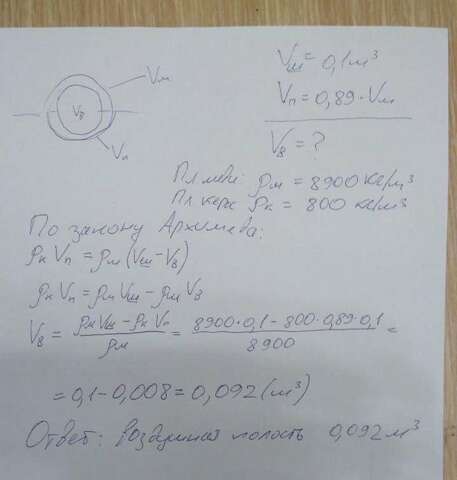 Vм
Vв
Vп
Vш = 0,1 м³
Vп = 0,89 · Vш
Vв = ?
Пл меди: ρм = 8900 кг/м³
Пл керос ρк = 800 кг/м³
По закону Архимеда:
ρк Vп = ρм (Vш – Vв)
ρк Vп = ρм Vш – ρм Vв
Vв = (ρм Vш – ρк Vп)/ρм = (8900·0,1 – 800·0,89·0,1)/8900 =
= 0,1 – 0,008 = 0,092 (м³)
Ответ: воздушная полость 0,092 м³